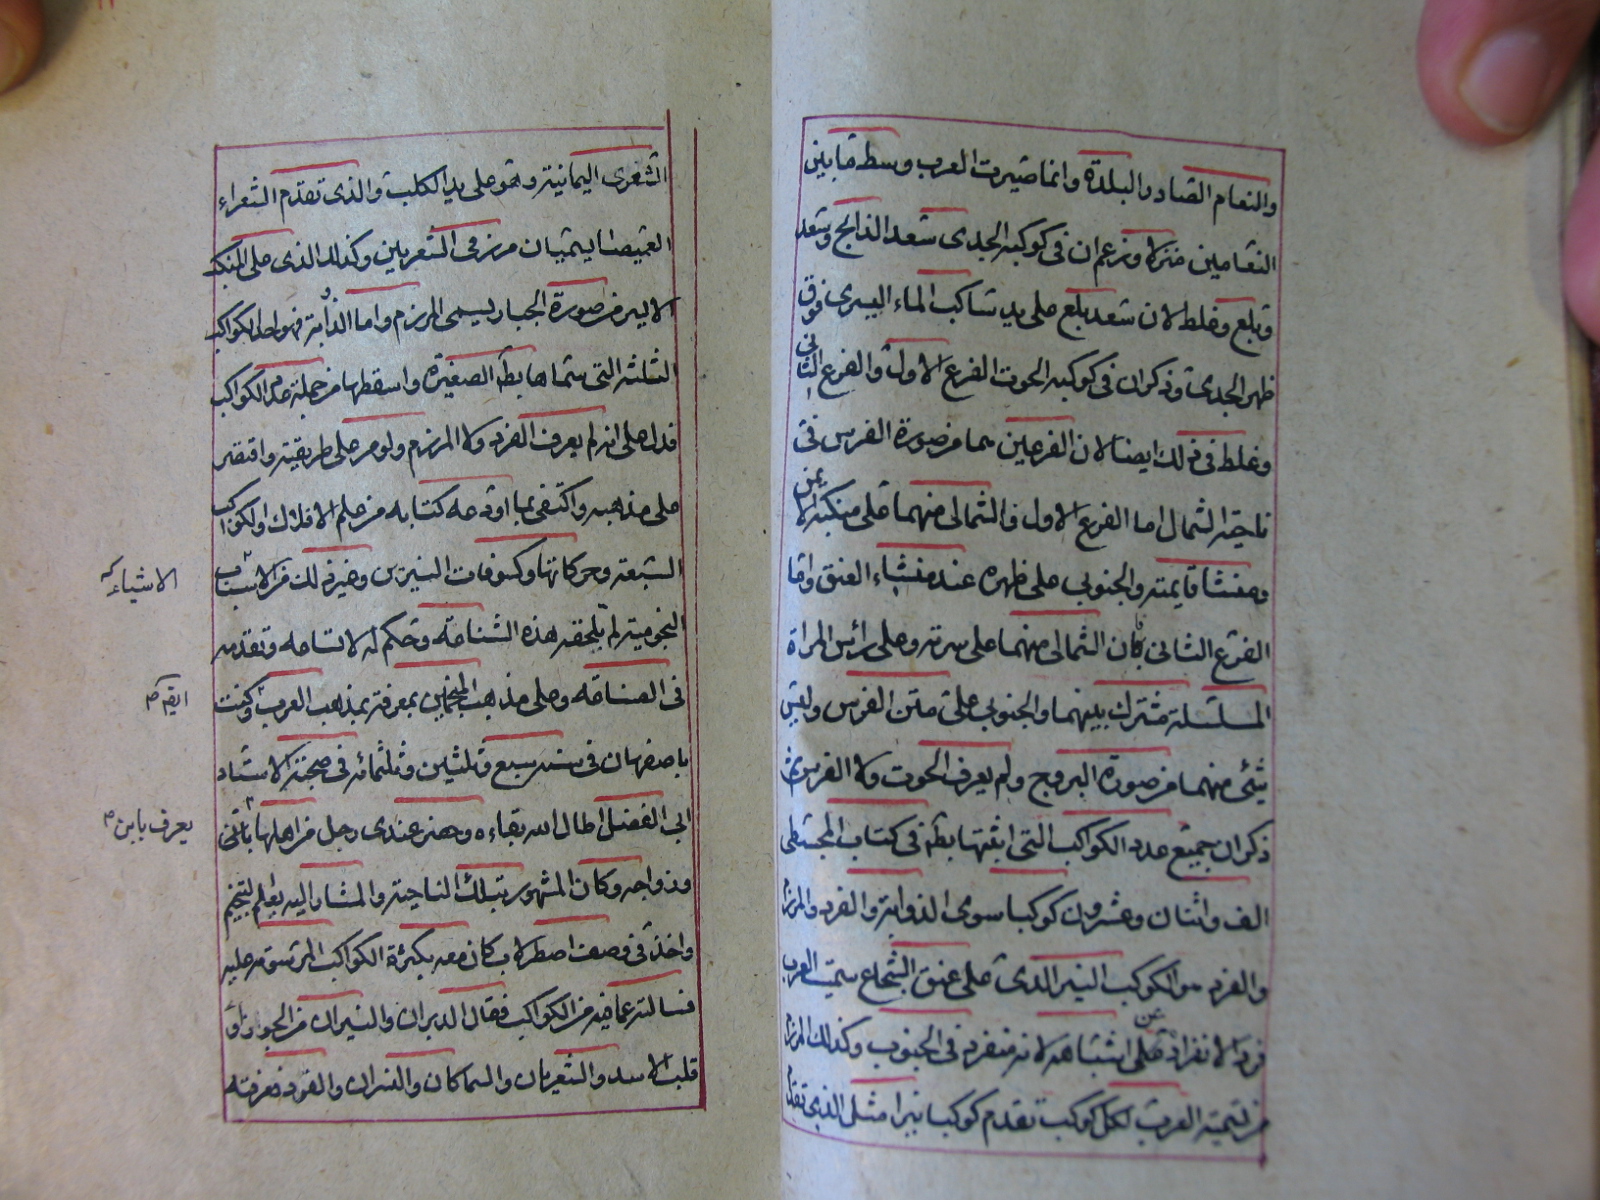 والنعام الصادر والبلدة وانما صيرت العرب وسط مابين
النعامين منزلا وزعم ان فى كوكبه الجدى سعد الذابح وسعد
وبلع وغلط لان سعد بلع على يد ساكب الماء اليسرى فوق
ظهر الجدى وذكر ان فى كوكبه الحوت الفرع الاول والفرع الثانى
وغلط فى ذلك ايضا لان الفرعين هما من صورة الفرس فى
ناحية الشمال اما الفرع الاول فالشمالى منهما على منكبه الايمن
ومنشا قايمته والجنوبى على ظهره عند منشاء العنق واما
الفرع الثانى فان الشمالى منهما على سرته وعلى رأس المراة
المسلسلة مشترك بينهما والجنوبى على متن الفرس وليس
شئ منهما من صورة البروج ولم يعرف الحوت ولا الفرس ثم
ذكر ان جميع عدد الكواكب التى اثبتها بطه فى كتاب المجسطى
الف واثنان وعشرون كوكبا سوى الذوابة والفرد والمرزم
والفرد هو الكوكب النير الذى على عنق الشجاع سمته العرب
فردا لانفراده عن اشباهه لانه منفرد فى الجنوب وكذلك المرزم
من تسمية العرب لكل كوكب تقدم كوكبا نيرا مثل الذى تقدم
الشعرى اليمانية وهو على يد الكلب والذى تقدم الشعراء
الغميصا يسميان مرزمى الشعريين وكذلك الذى على المنكب
الايسر من صورة الجبار يسمى المرزم واما الذؤابة فهو احد الكواكب
الثلثه التى سماها بطه الصغيرة واسقطها من جملة عدد الكواكب
فدل على انه لم يعرف الفرد ولا المرزم ولو مر على طريقته واقتصر
على مذهبه واكتفى بما اودعه كتابه من علم الافلاك والكواكب
السبعة وحركاتها وكسوفات النيرين وغير ذلك من الاسباب
النجومية لم يلحقه هذه الشناعة وحكم له لاتساعه وتقدمه
فى الصناعه وعلى مذهب المنجمين بمعرفة بمذهب العرب وكنت
باصفهان فى سنة سبع وثلثين وثلثمائه فى صحبة الاستاد
ابى الفضل اطال الله بقاءه وحضر عندى رجل من اهلها باتى
وذواجه وكان المشهور بتلك الناحية والمشار اليه بعلم التنجم
واخذ فى وصف اصطرلاب كان معه بكثرة الكواكب المرسومه عليه
فسالته عما فيه من الكواكب فقال الدبران والنيران من الجوزاء و
قلب الاسد والشعريان والسماكان والنسران والفرد فعرفته
الاشياء
يعرف بابن